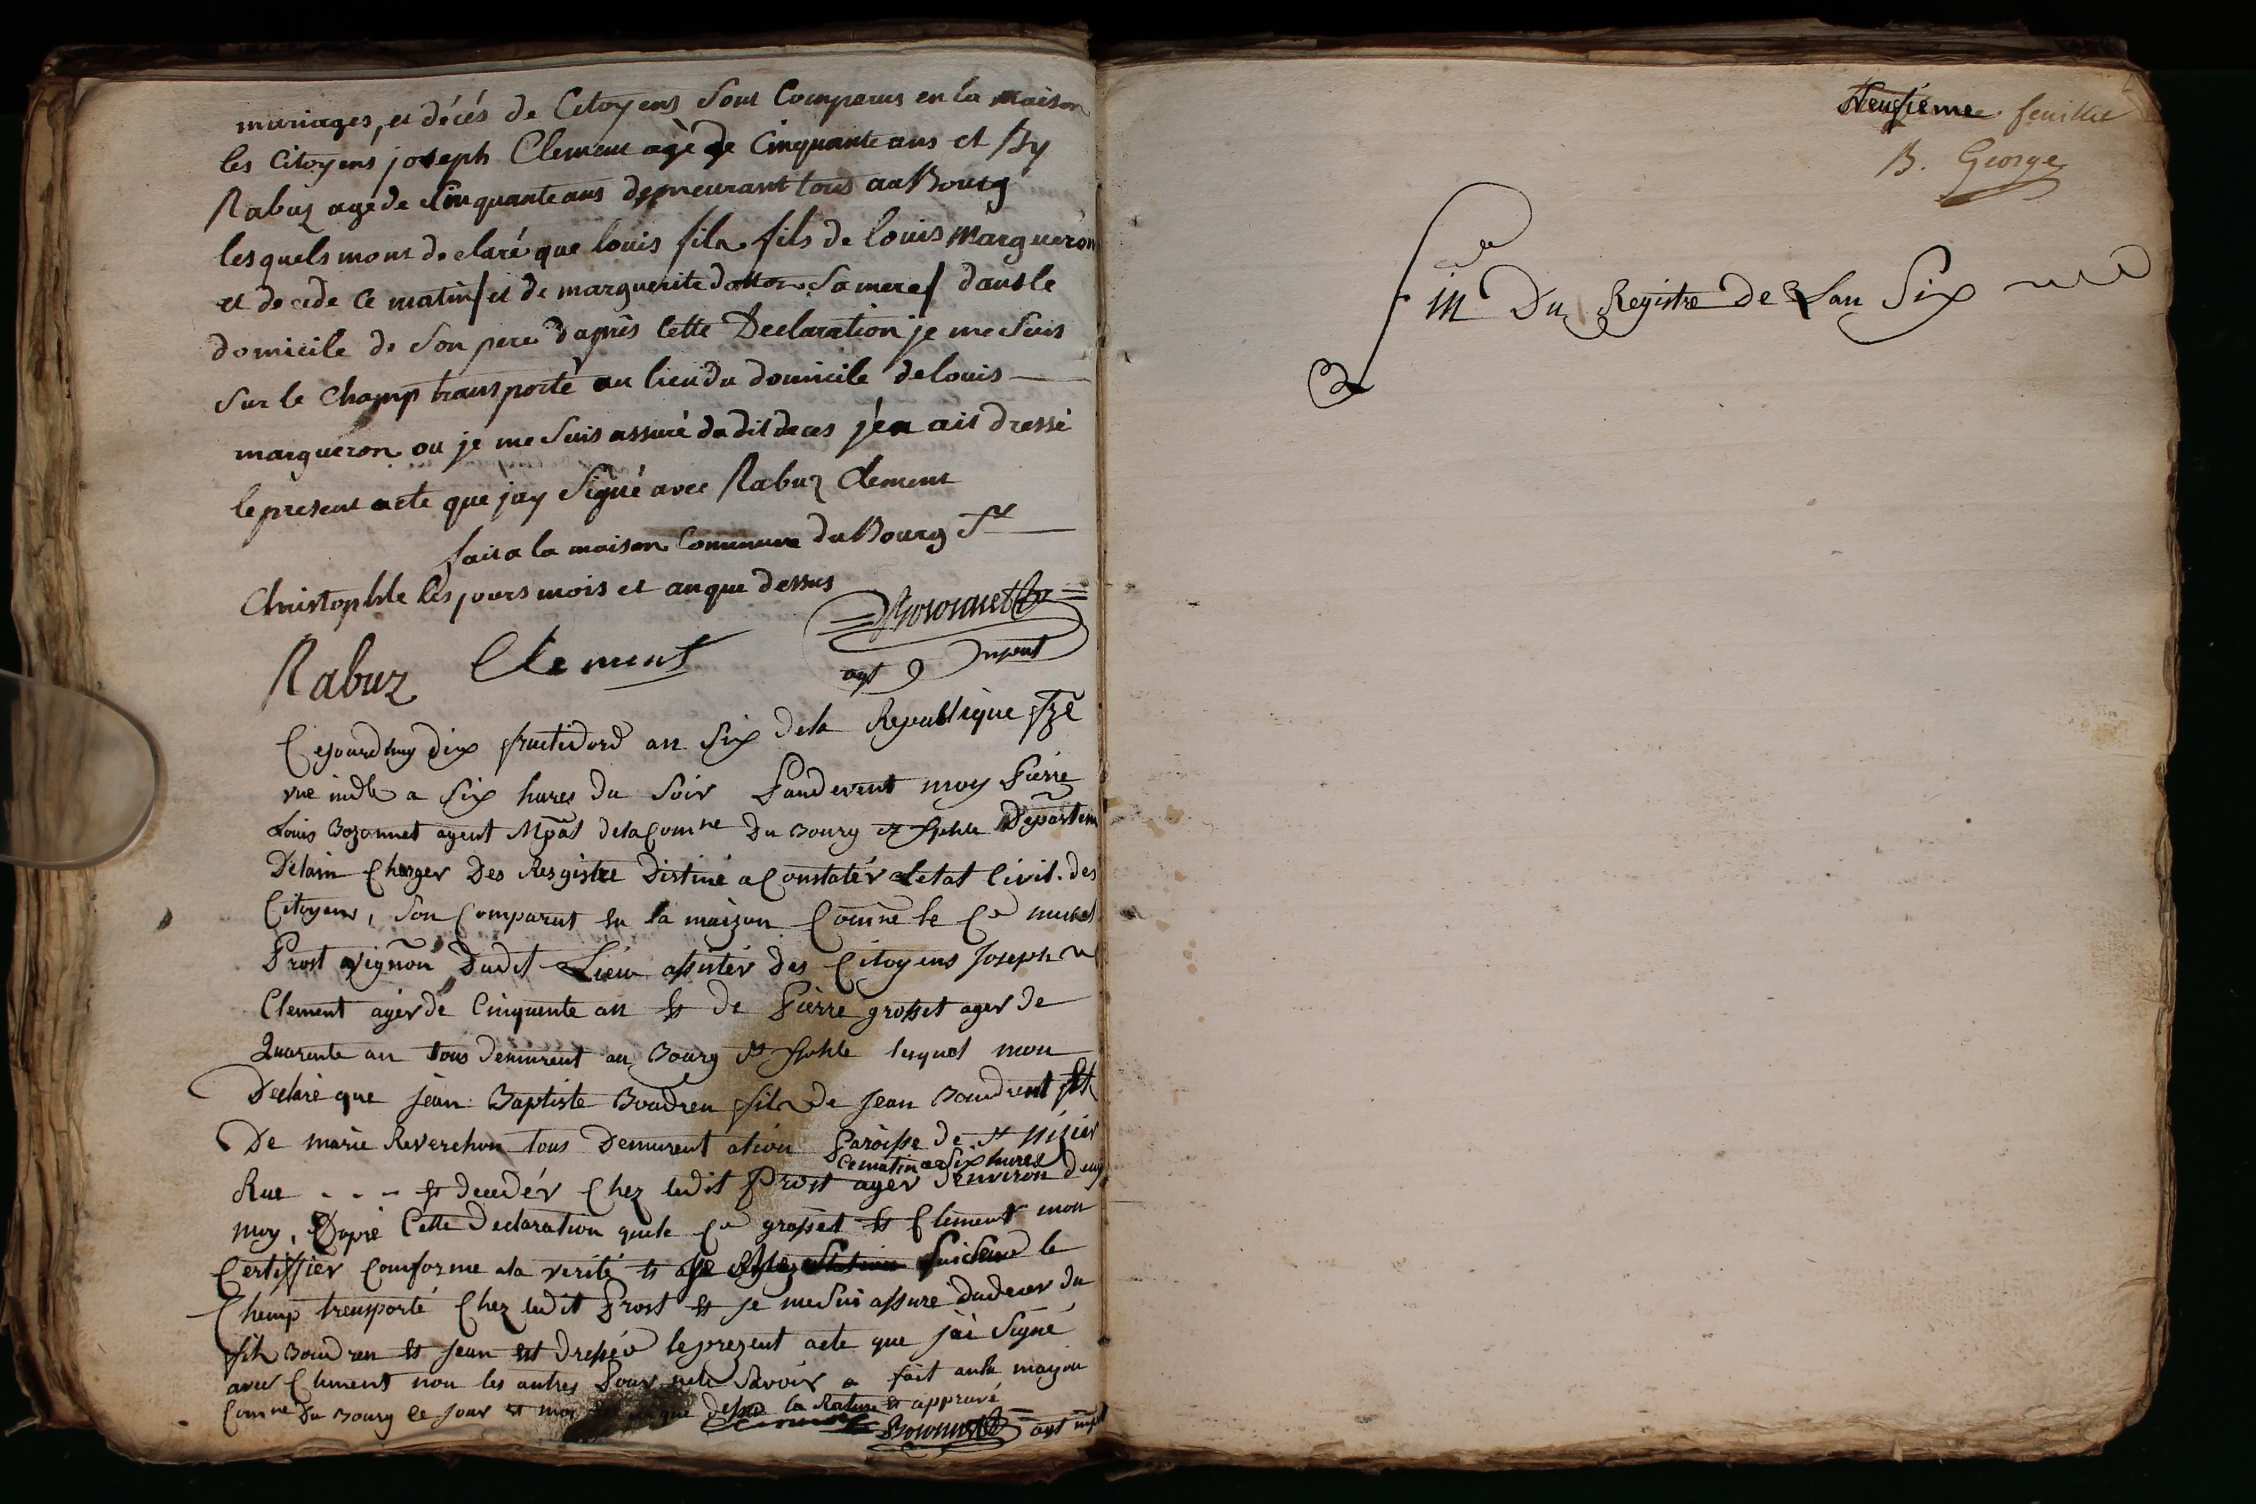 mariages, et décés de Citoyens Sont Comparus en la maison
les Citoyens joseph Clement agè de Cinquante ans et By
Rabuz agé de Cinquante ans demeurant tous au Bourg
lesquels mont declaré que louis fils de louis margueron
et decede ce matin / et de marguerite Sa mere / dans le
domicile de Son pere d'aprés cette Declaration je me Suis
Sur le Champ transporté au lieu du domicile de louis
margueron ou je me Suis assuré du dit deces j'en ait dressé
le present acte que jay Signé avec Rabuz Clement
fait a la maison Commune du Bourg St
Christophle les jours mois et an que dessus
Rabuz Clement
agt
Cejourdhuy dix fructidord an Six dela Republique
a Six hures du Soir Pardevent moy Pierre
Louis Bozonnet agent Mpal dela Comne Du Bourg St Departem
Delain Charger Des Resgistre Distiné a Constatér Letat Civil des
Citoyens, Son Comparut en la maizon Comne le Cn
Prost vignon Dudit Lieu assistér des Citoyens Joseph
Clement agér dé Cinquente an et de Pierre grosset ager de
Quarente an tous demurent au Bourg St lesquel mon
Declaré que jean Baptiste Boudren fils de jean Boudrent et
De marie Reverchon tous Demurent Paroisse de St nizier
ce matin a Six hures
Rue - - - et decedér Chez ledit Prost ager denviron deux
moy, Dapré Cette Declaration que le Cn grosset et Clement mon
Certiffier Conforme ala verité et Suis Sur le
Champ trensporté Chez ledit Prost et je me Suis assuré dudecer du
fils Boudren et jean est dressér le prezent acte que j'ai Signé
avec Clement non les autres Pour ne le Savoir fait
Comne Du Bourg le Jour et moy que dessu la Rature et approuvé
agt mpl
Neufieme feuillet
B. George
fin Du Registre De Lan Six